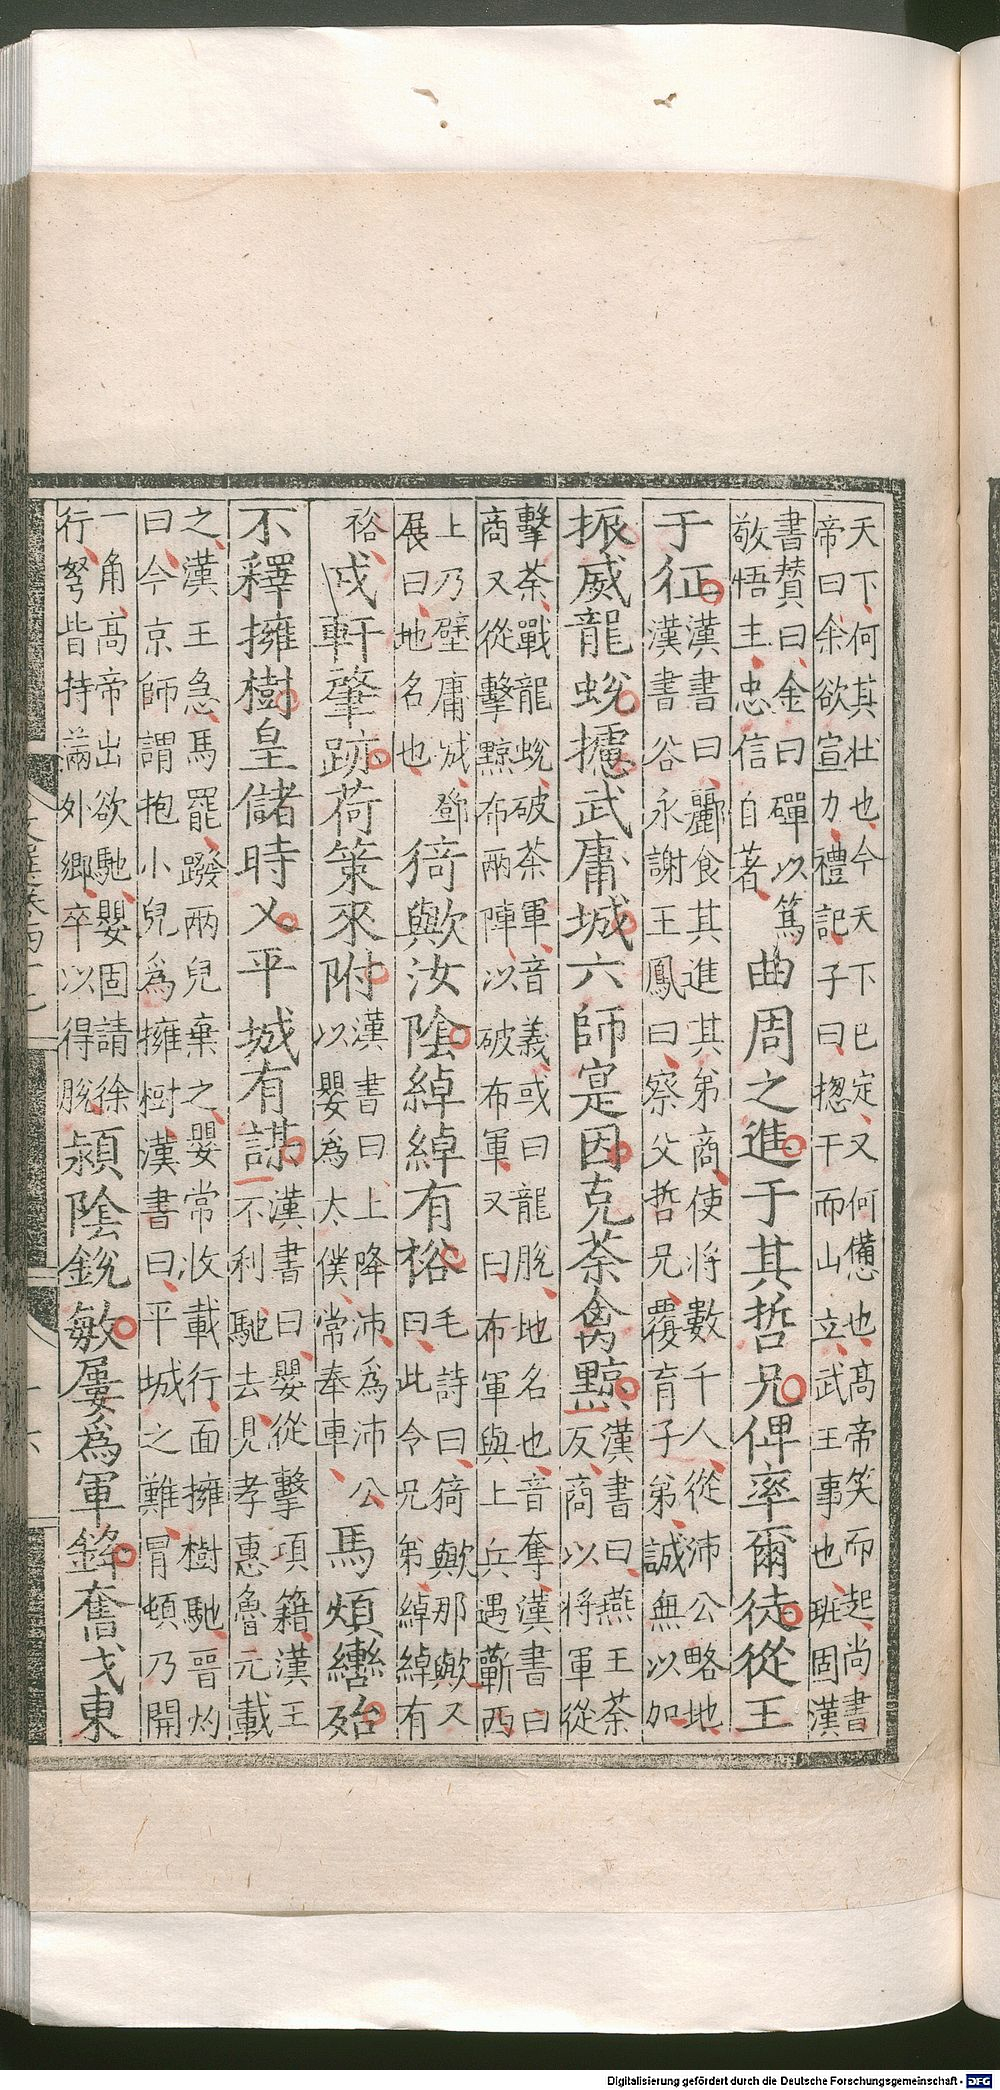 天下何其壯也今天下已定又何憊也髙帝笑而起尚書
帝曰余欲宣力禮記子曰揔干而山立武王事也班固漢
書賛曰金曰磾以篤
敬悟主忠信自著
曲周之進于其哲兄俾率爾徒從王
于征
漢書曰酈食其進其弟商使將數千人從沛公略地
漢書谷永謝王鳳曰察父哲兄覆育子弟誠無以加
振威龍蛻攄武庸城六師寔因克荼禽黥
漢書曰燕王荼
反商以將軍從
擊荼戰龍蛻破荼軍音義或曰龍脫地名也音奪漢書曰
商又從擊黥布兩陣以破布軍又曰布軍與上兵遇蘄西
上乃壁庸城鄧
展曰地名也
猗歟汝隂綽綽有裕
毛詩曰猗歟那歟又
曰此令兄弟綽綽有
裕
戎軒肇跡荷策來附
漢書曰上降沛為沛公
以嬰為太僕常奉車
馬煩轡殆
不釋擁樹皇儲時乂平城有謀
漢書曰嬰從擊項籍漢王
不利馳去見孝惠魯元載
之漢王急馬罷蹳兩兒棄之嬰常收載行面擁樹馳晉灼
曰今京師謂抱小兒為擁樹漢書曰平城之難冒頓乃開
一角髙帝出欲馳嬰固請徐
行弩皆持滿外鄉卒以得脫
潁隂銳敏屢為軍鋒奮戈東
Digitalisierung gefördert durch die Deutsche Forschungsgemeinschaft - DFG